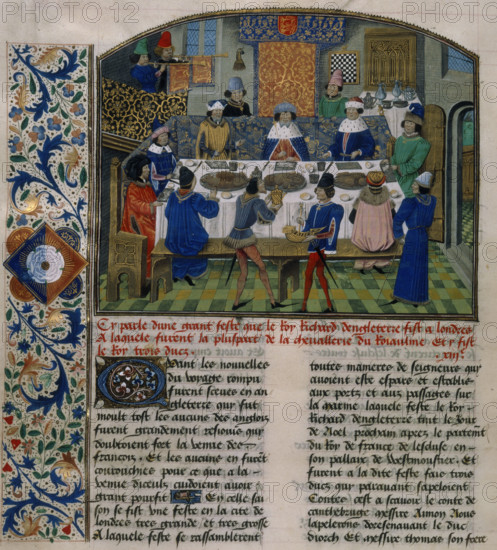 Cy parle dune grant feste que le Roy Richard dengleterre fist a londres
A laquele furent la pluspart de la chevallerie du Roiaulme Et y fist
le Roy trois ducz. .xxii.
Quant les nouvelles
du voyage rompu
furent sceues en an
gleterre qui fut
moult tost les aucuns des anglois
furent grandement resiouis qui
doubtoient fort la venue des
francois. Et les aucuns en furent
courouchies pour ce que a la
venue diceulx cuidoient avoir
grant pourfit Et en celle sai
son se fist une feste en la cite de
londres tres grande et tres grosse
A laquele feste se rassamblerent
toutes manieres de seigneurs qui
avoient este espars et establis
aux portz et aux passages sur
la marine laquele feste le Roy
Richard dengleterre tint le Jour
de Noel prochain apres le partemt
du Roy de france de lescluse en
son pallaix de Westmonstier. Et
furent a la dite feste fais trois
ducz qui paravant sapeloient
Contes cest a scavoir le conte de
cantbebruge messire Aimon Nous
lapelerons doresenavant le duc
diorch Et messire thomas son frere